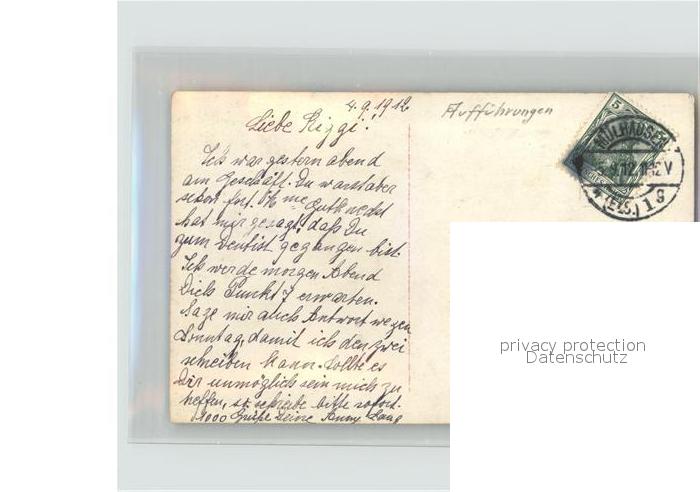 4.9.1912
Aufführungen
Liebe Kiggi!
Ich war gestern abend
am Geschäft. Du warst aber
schon fort. Ohne Gutknecht
hat mir gesagt, daß Du
zum Dentist gegangen bist.
Ich werde morgen Abend
Dich Punkt 7 erwarten.
Sage mir auch Antwort wegen
Sonntag, damit ich den zwei
schreiben kann. Sollte es
Dir unmöglich sein mich zu
treffen, so schreibe bitte sofort.
1000 Grüße Deine Anny
5
MÜLHAUSEN
12 V
(ELS.) 1 g
privacy protection
Datenschutz